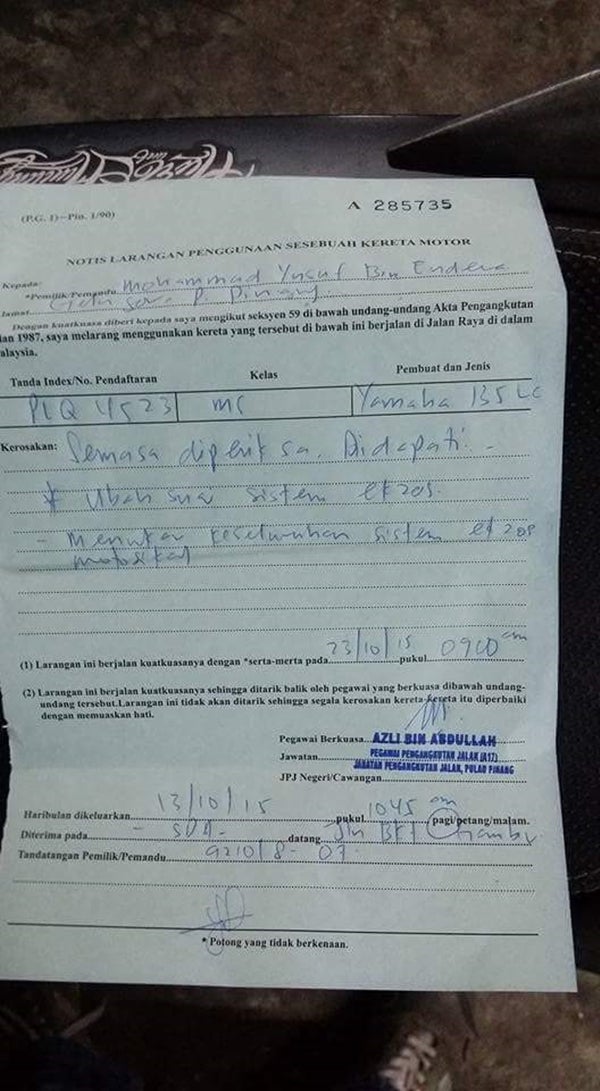 (P.G. 1)—Pin. 1/90)
A 285735
NOTIS LARANGAN PENGGUNAAN SESEBUAH KERETA MOTOR
Kepada:
*Pemilik/Pemandu Mohammad Yusuf Bin
lamat P. Pinang
Dengan kuatkuasa diberi kepada saya mengikut seksyen 59 di bawah undang-undang Akta Pengangkutan
lan 1987, saya melarang menggunakan kereta yang tersebut di bawah ini berjalan di Jalan Raya di dalam
alaysia.
Tanda Index/No. Pendaftaran Kelas Pembuat dan Jenis
PLQ 4523 mc Yamaha 135 LC
Kerosakan: Semasa diperiksa. Didapati:-
* Ubah suai sistem ekzos.
- Menukar keseluruhan sistem ekzos
motosikal
(1) Larangan ini berjalan kuatkuasanya dengan *serta-merta pada 23/10/15 pukul 0900 am
(2) Larangan ini berjalan kuatkuasanya sehingga ditarik balik oleh pegawai yang berkuasa dibawah undang-
undang tersebut.Larangan ini tidak akan ditarik sehingga segala kerosakan kereta-kereta itu diperbaiki
dengan memuaskan hati.
Pegawai Berkuasa AZLI BIN ABDULLAH
Jawatan PEGAWAI PENGANGKUTAN JALAN (A17)
JABATAN PENGANGKUTAN JALAN, PULAU PINANG
JPJ Negeri/Cawangan
Haribulan dikeluarkan 13/10/15 pukul 1045 am pagi/petang/malam.
Diterima pada - SDA - datang Jln Bkt Gambir
Tandatangan Pemilik/Pemandu
* Potong yang tidak berkenaan.